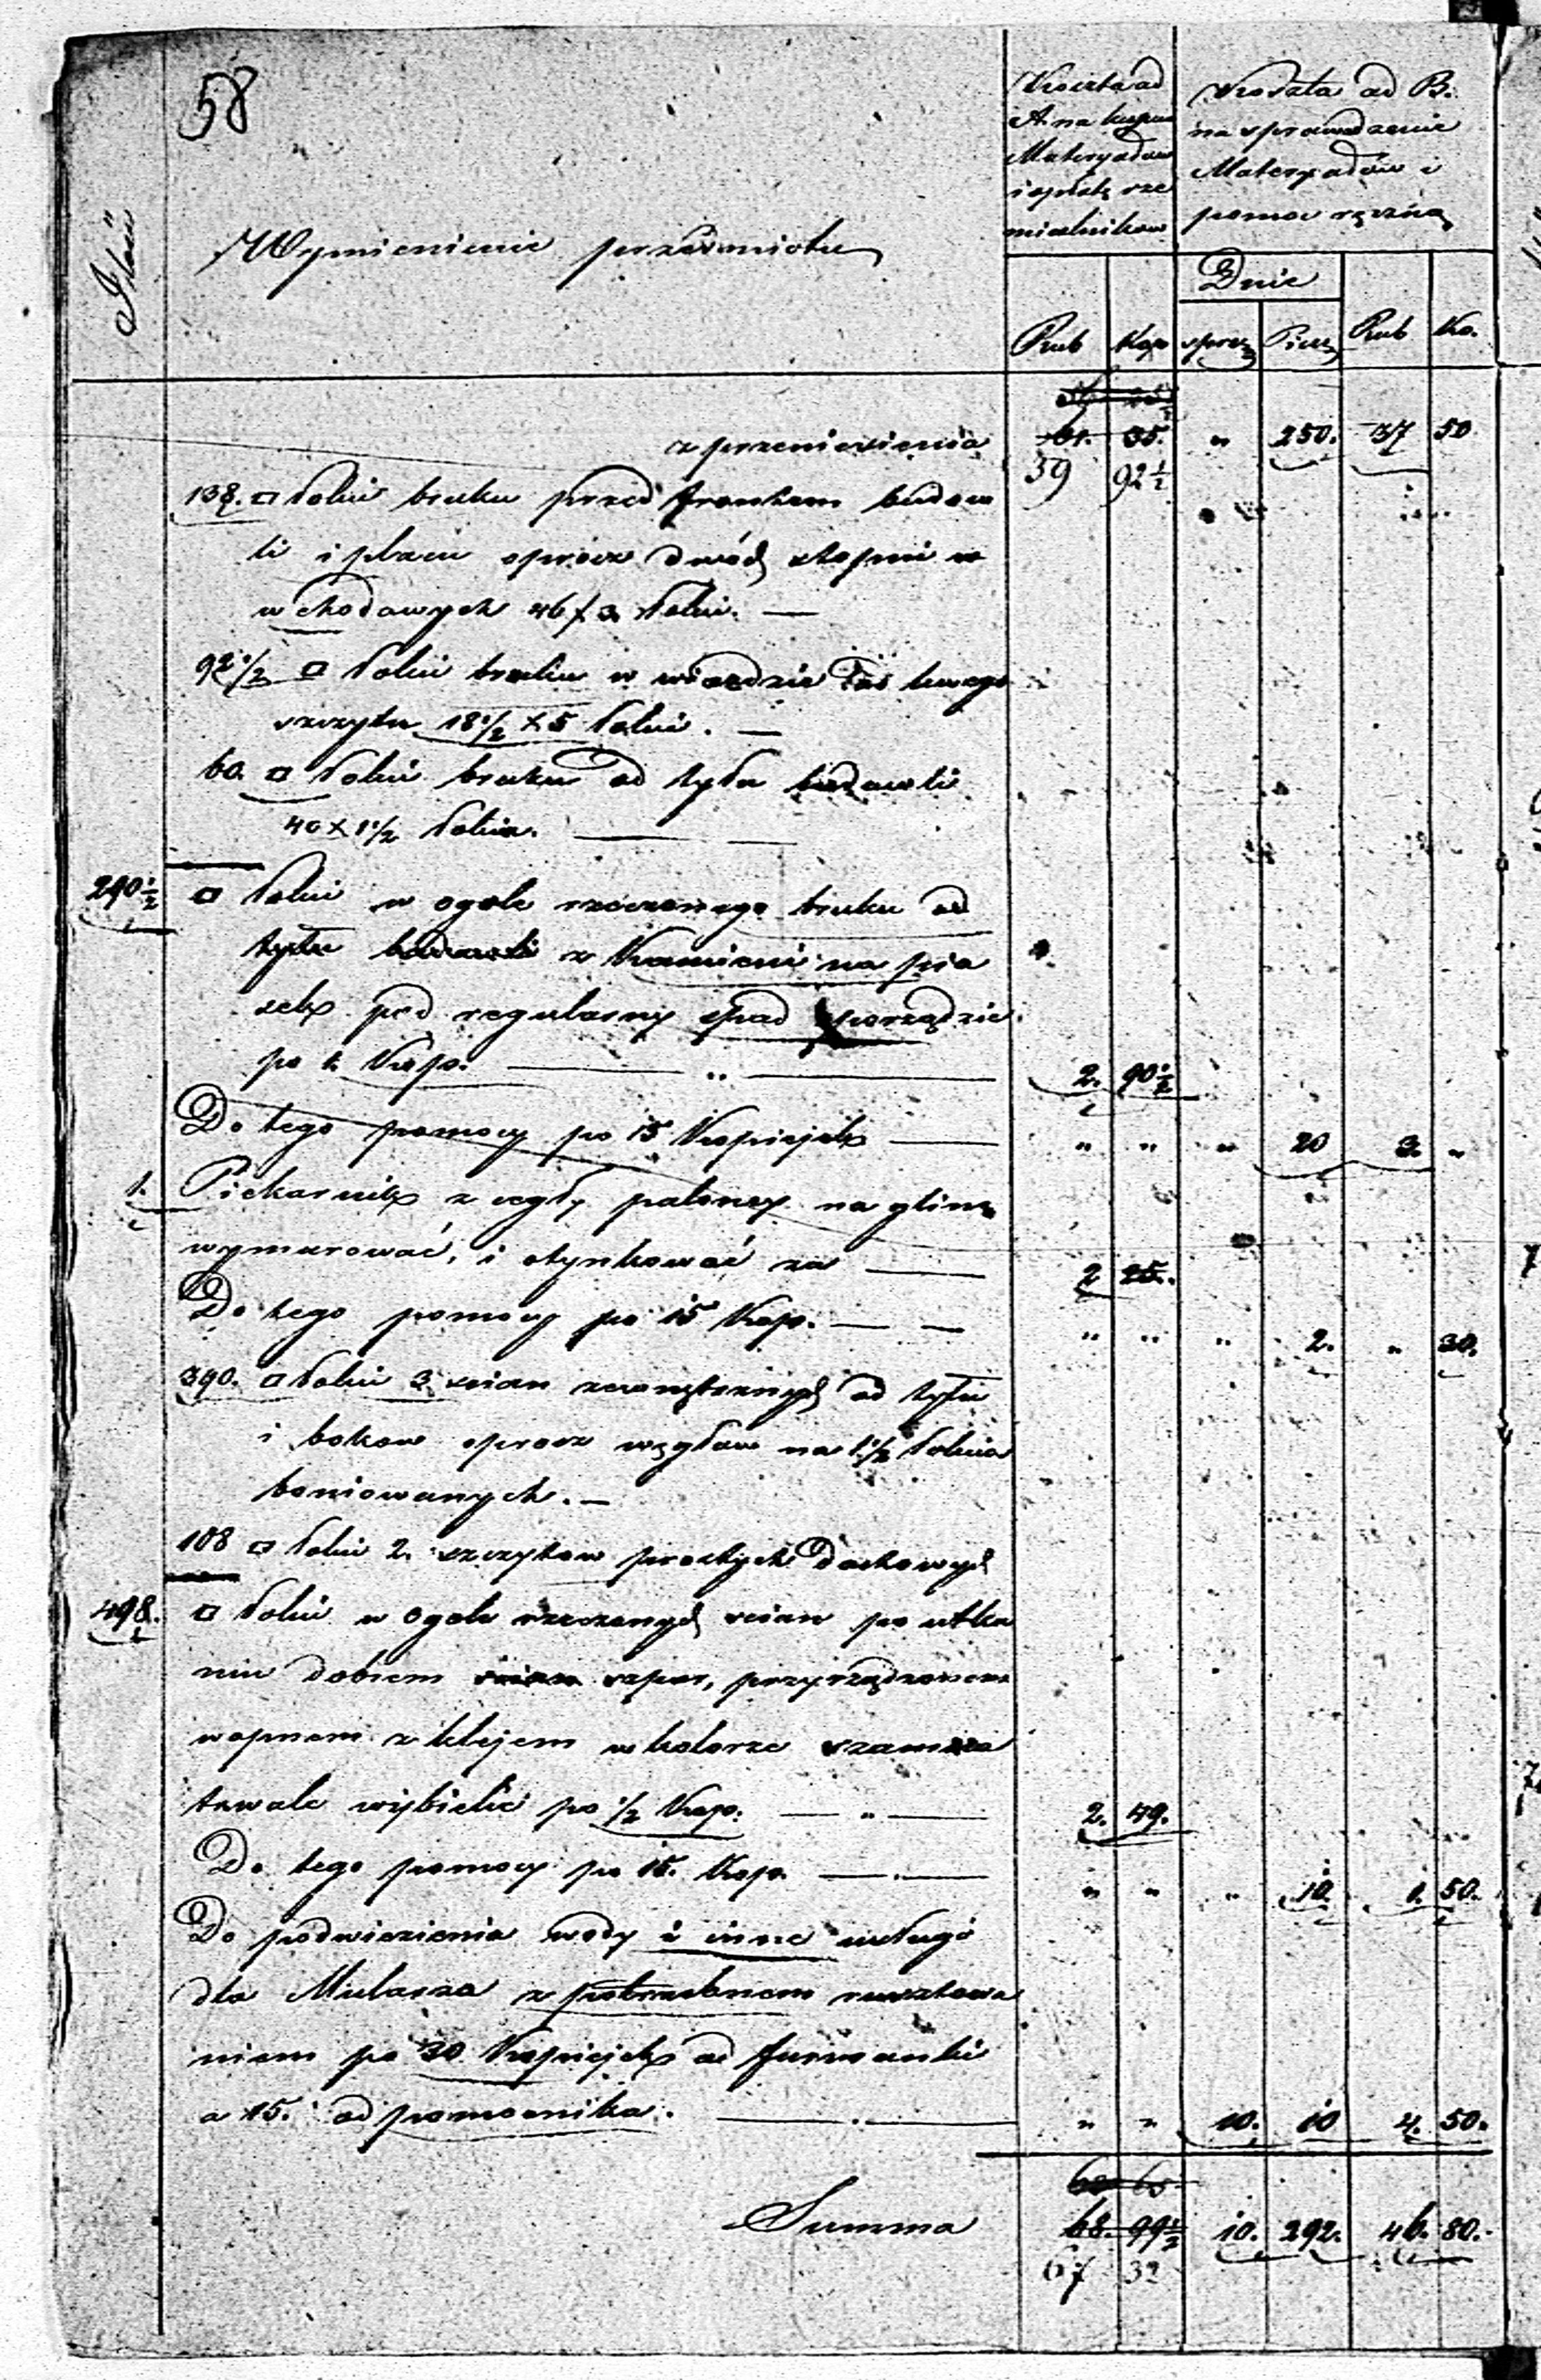 58
Ilość
Wymienienie przedmiotu
Koszta od
A. na kupno
Materyałow
i opłatę rze
mieślnikow
Koszta od B.
na sprowadzenie
Materyałów i
pomoc ręczną
Dnie
Rub Kop sprzęż Piesz Rub Ko.
z przeniesienia 61. 35. " 250. 37 50
59 92 1/2
138. □ Łokci bruku przed frontem budow
li i placu oprócz dwóch stopni w
wchodowych 46 x 3 Łokci. —
92 1/2 □ Łokci bruku w wiezdzie do lewego
szczytu 18 1/2 x 5 Łokci. —
60. □ Łokci bruku od tyłu budowli
40 x 1 1/2 Łokcia. —
290 1/2 □ Łokci w ogole rzeczonego bruku od
tyłu budowli z Kamieni na pia
sek pod regularny spad porządzić
po 1. Kop. — " — 2. 90 1/2
Do tego pomocy po 15 Kopiejek — " " " 20 3. "
1. Piekarnik z cegły paloney na glinę
wymurować, i otynkować za — 2 25.
Do tego pomocy po 15 Kop. — — " " " 2. " 30.
390. □ Łokci 3 scian zewnętrznych od tyłu
i bokow oprocz węgłow na 1 1/2 Łokcia
boniowanych. —
108 □ Łokci 2. szczytow prostych dachowych
498. □ Łokci w ogole rzeczonych scian po utka
niu dobrem szpar, przyrządzonem
wapnem z klejem w kolorze szamua
trwale wybielić po 1/2 Kop. — " — 2. 49.
Do tego pomocy po 15. Kop. — " " " 10. 1. 50.
Do podwiezienia wody i inne usługi
dla Mularza z potrzebnem rusztowa
niem po 30 Kopiejek od furmanki
a 15. od pomocnika. — " " 10. 10 4. 50.
Summa 68. 99 1/2 10. 292. 46. 80.
67 32